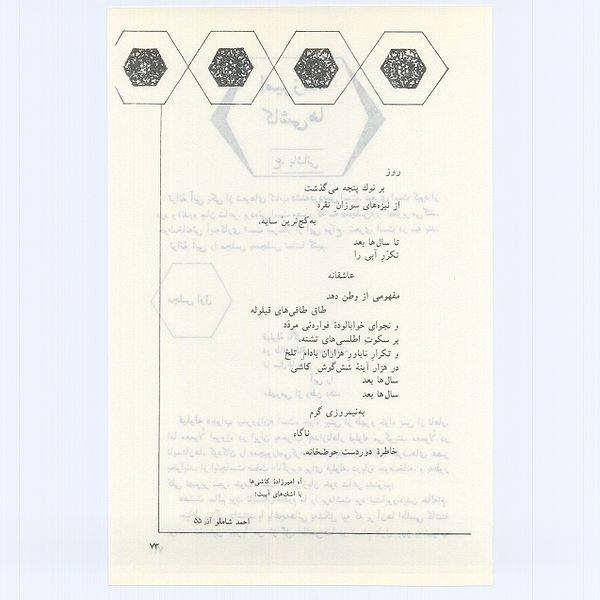 روز
بر نوك پنجه می‌گذشت
از نیزه‌های سوزان نقره
به‌کج‌ترین سایه،
تا سال‌ها بعد
تکرّرِ آبی را
عاشقانه
مفهومی از وطن دهد
طاق طاقی‌های قیلوله
و نجوای خواب‌آلودهٔ فواره‌ئی مردّد
بر سکوتِ اطلسی‌های تشنه،
و تکرارِ ناباورِ هزاران بادامِ تلخ
در هزار آینهٔ شش‌گوشِ کاشی
سال‌ها بعد
سال‌ها بعد
به‌نیمروزی گرم
ناگاه
خاطرهٔ دوردست حوضخانه.
آه امیرزادهٔ کاشی‌ها
با اشك‌های آبیت!
احمد شاملو آذر ۵۵
۷۳